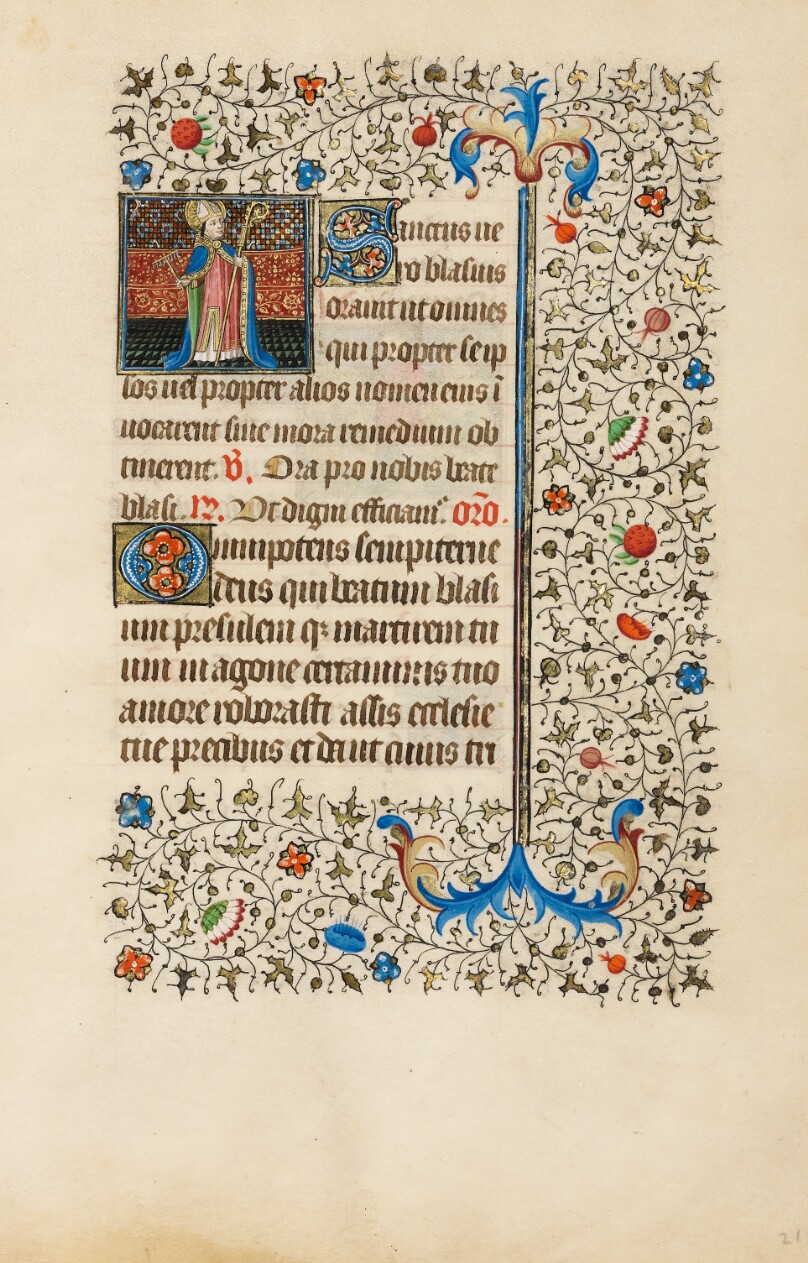 Sanctus ue
ro blasius
orauit ut omnes
qui propter se ip
sos uel propter alios nomen eius ī
uocarent sine mora remedium ob
tinerent. V. Ora pro nobis beate
blasi. R. Vt digni efficiam᷒. orō.
Omnipotens sempiterne
deus qui beatum blasi
um presulem qꝫ martirem tu
um in agone certaminis tuo
amore roborasti assis ecclesie
tue precibus et da ut cuius tri
21